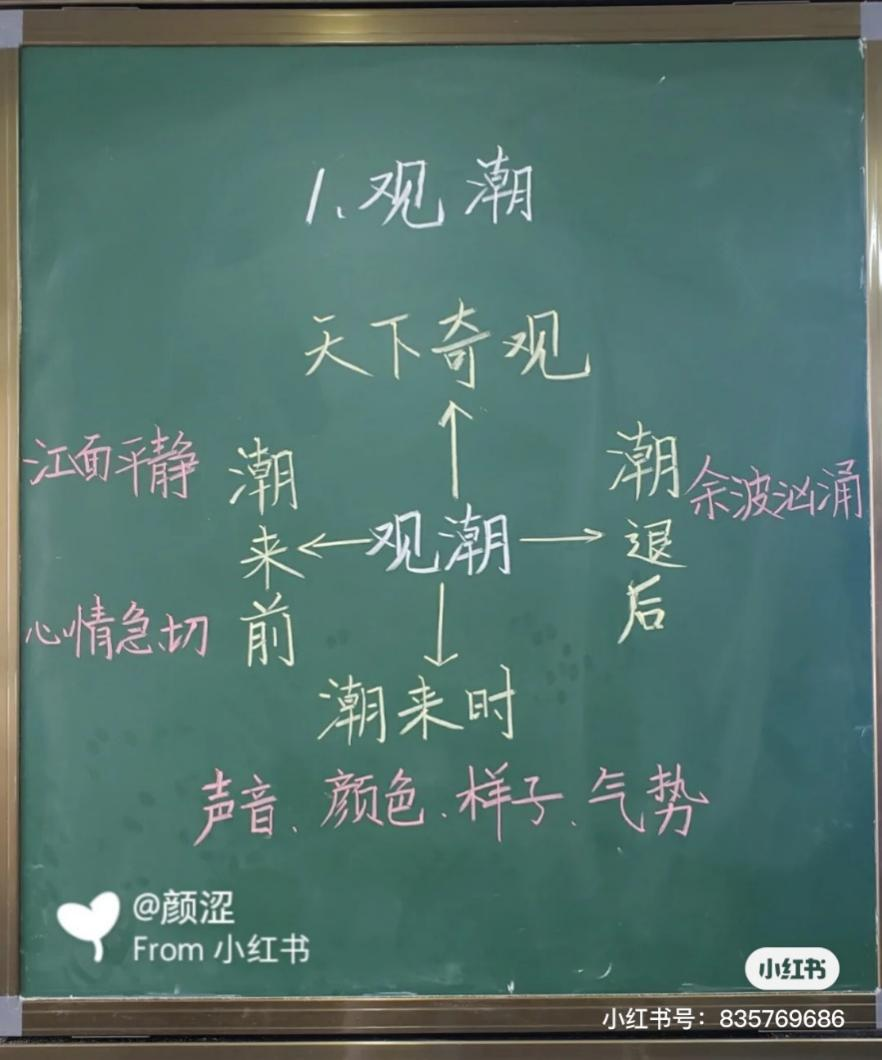 1、观潮
天下奇观
江面平静
心情急切
潮来前
观潮
潮退后
余波汹涌
潮来时
声音、颜色、样子、气势
@颜涩
From 小红书
小红书
小红书号：835769686